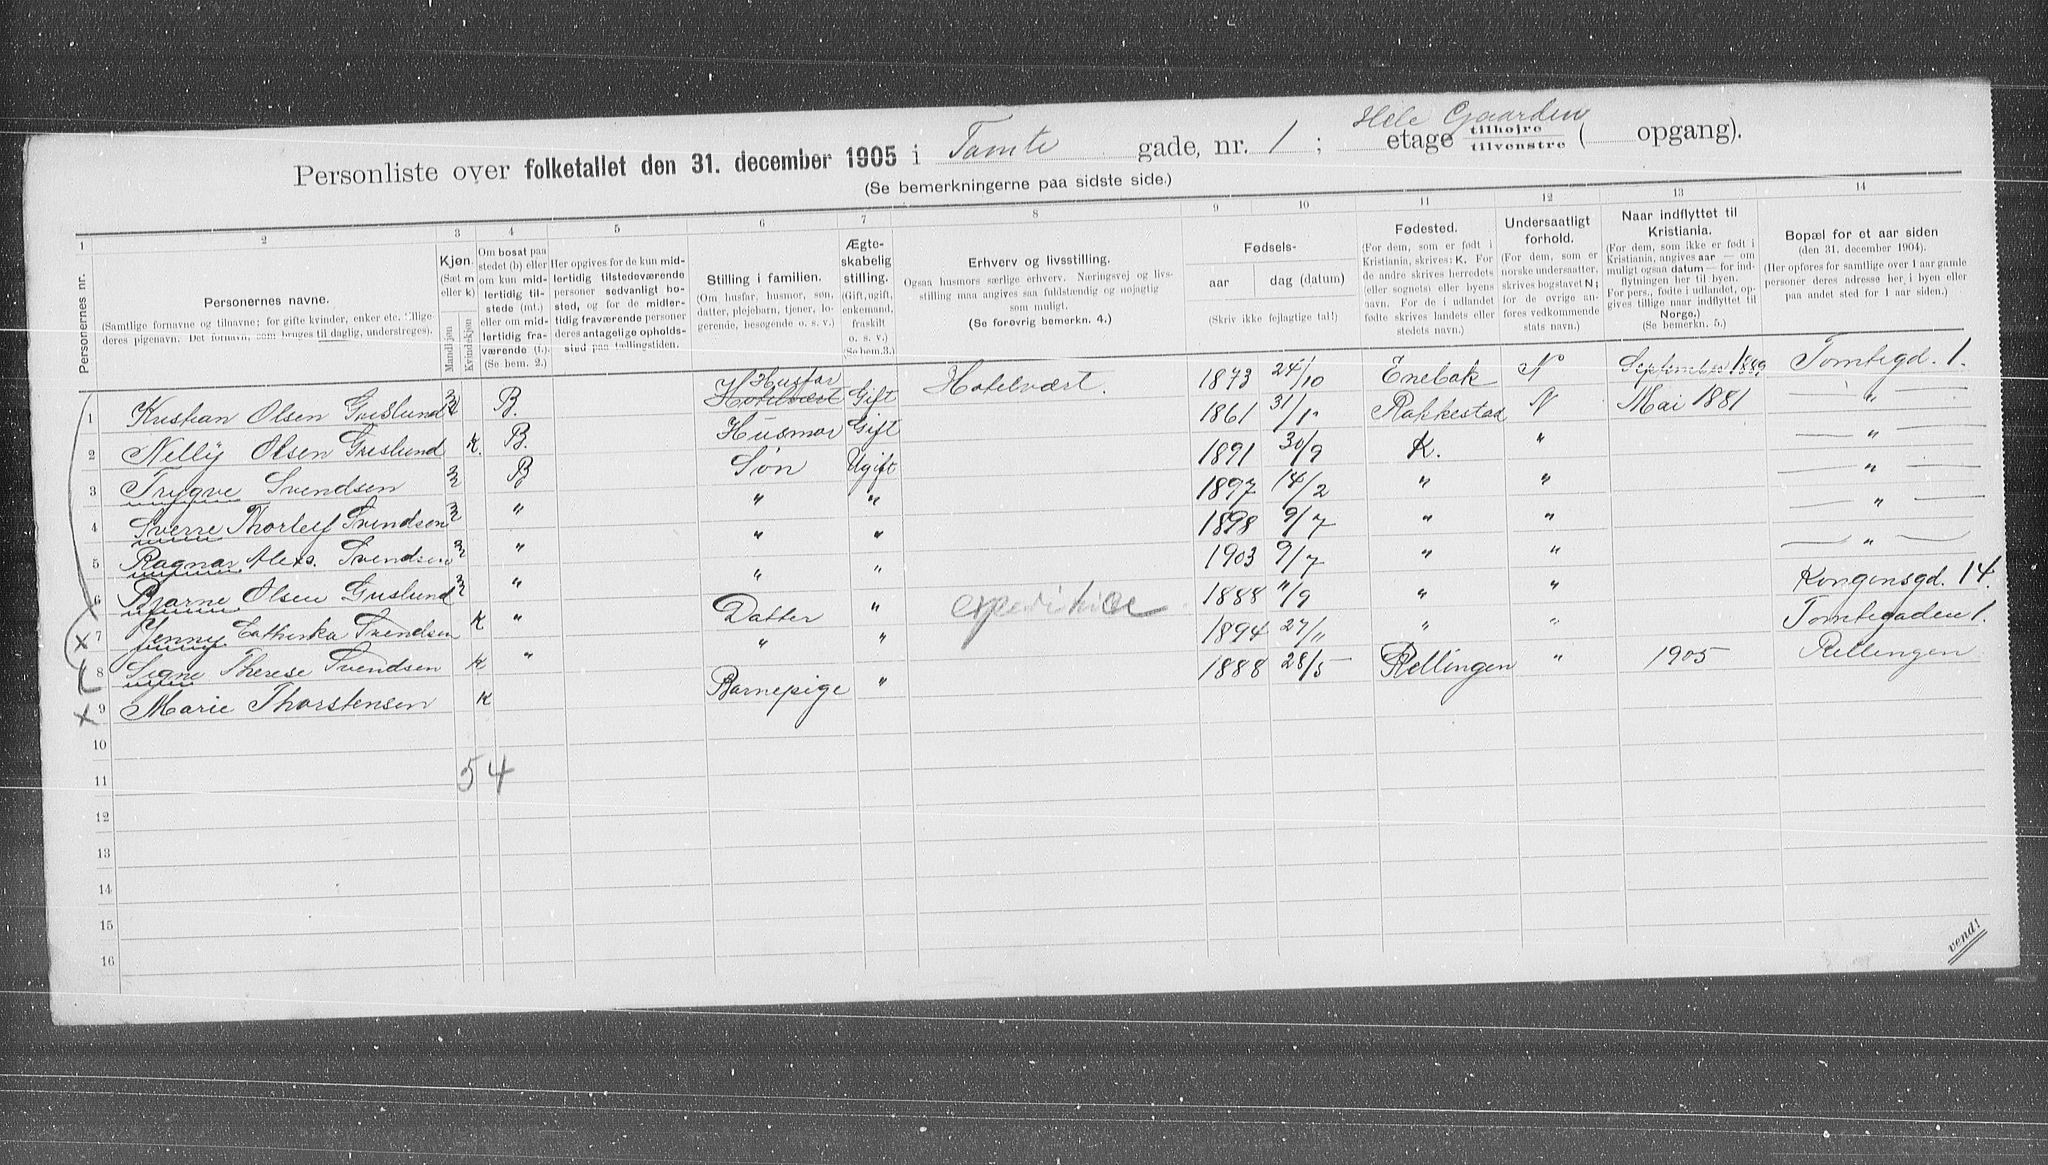 Personliste over folketallet den 31. december 1905 i Tomte gade, nr. 1; Hele Gaarden etage tilhøjre tilvenstre ( opgang).
(Se bemerkningerne paa sidste side.)
1 2 3 4 5 6 7 8 9 10 11 12 13 14
Personernes nr.
Personernes navne.
(Samtlige fornavne og tilnavne; for gifte kvinder, enker etc. tillige deres pigenavn. Det fornavn, som bruges til daglig, understreges).
Kjøn.
(Sæt m eller k)
Mandkjøn
Kvindekjøn
Om bosat paa stedet (b) eller om kun midlertidig tilstede (mt.) eller om midlertidig fraværende (f.). (Se bem. 2.)
Her opgives for de kun midlertidig tilstedeværende personer sedvanligt bosted, og for de midlertidig fraværende personer deres antagelige opholdssted paa tællingstiden.
Stilling i familien.
(Om husfar, husmor, søn, datter, plejebarn, tjener, logerende, besøgende o. s. v.)
Ægteskabelig stilling.
(Gift, ugift, enkemand, fraskilt o. s. v.)
(Se bem. 3.)
Erhverv og livsstilling.
Ogsaa husmors særlige erhverv. Næringsvej og livsstilling maa angives saa fuldstændig og nøjagtig som muligt.
(Se forøvrig bemerkn. 4.)
Fødsels-
aar dag (datum)
(Skriv ikke fejlagtige tal!)
Fødested.
(For dem, som er født i Kristiania, skrives: K. For de andre skrives herredets (eller sognets) eller byens navn. For de i udlandet fødte skrives landets eller stedets navn.)
Undersaatligt forhold.
(For dem, som er norske undersaatter, skrives bogstavet N; for de øvrige anføres vedkommende stats navn.)
Naar indflyttet til Kristiania.
(For dem, som ikke er født i Kristiania, angives aar — om muligt ogsaa datum — for indflytningen her til byen. For pers., fødte i udlandet, opgives tillige naar indflyttet til Norge.)
(Se bemerkn. 5.)
Bopæl for et aar siden
(den 31. december 1904).
(Her opføres for samtlige over 1 aar gamle personer deres adresse her i byen eller paa andet sted for 1 aar siden.)
1 Kristian Olsen Grislund m B. Hotelvært Husfar Gift Hotelvært. 1873 24/10 Enebak N September 1889 Tomtegd. 1.
2 Nelly Olsen Grislund K. B. Husmor Gift 1861 31/1 Rakkestad N Mai 1881 "
3 Trygve Svendsen m B Søn Ugift 1891 30/9 K. " "
4 Sverre Thorleif Svendsen m " " " 1897 14/2 " " "
5 Ragnar Alex. Svendsen m " " " 1898 9/7 " " "
6 Bjarne Olsen Grislund m " " " 1903 9/7 " " "
x 7 Jenny Cathinka Svendsen K " Datter " expeditrice 1888 11/9 " " Kongensgd. 14.
8 Signe Therese Svendsen K " " " 1894 27/11 " " Tomtegaden 1.
x 9 Marie Thorstensen K Barnepige " 1888 28/5 Rellingen " 1905 Rellingen
10
11 5 4
12
13
14
15
16
vend!